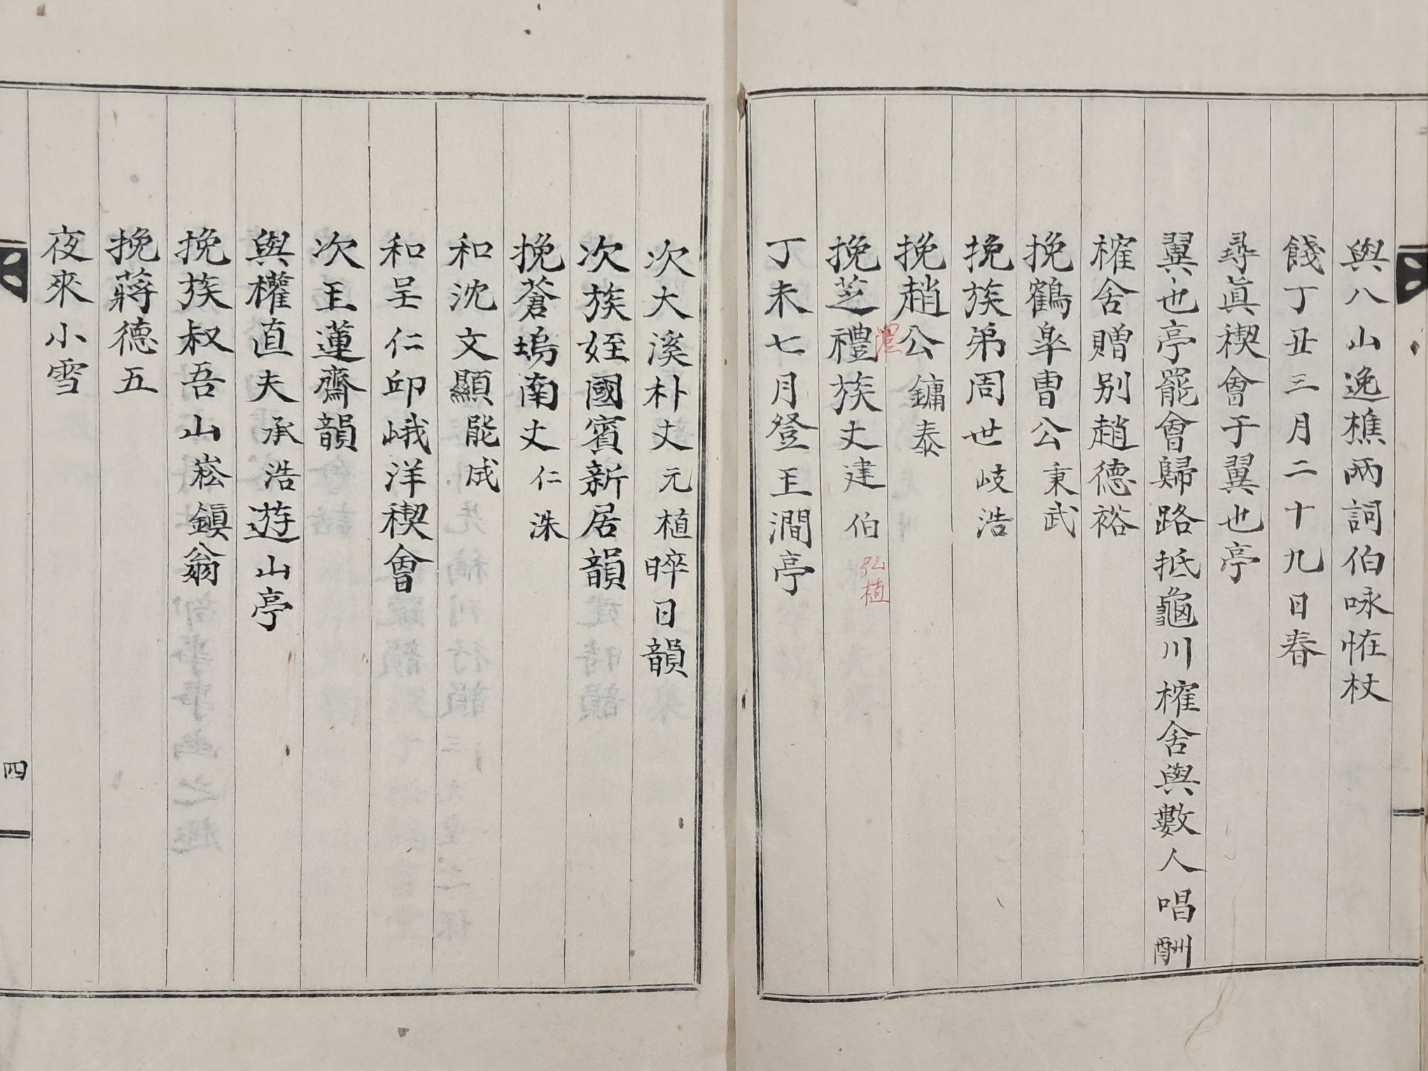 與八山逸樵兩詞伯咏恠杖
餞丁丑三月二十九日春
尋眞禊會于翼也亭
翼也亭罷會歸路抵龜川榷舍與數人唱酬
榷舍贈別趙德裕
挽鶴皐曺公秉武
挽族弟周世岐浩
挽趙公鏞泰
挽芝禮族丈建伯弘植
澧
丁未七月登玉澗亭
次大溪朴丈元植晬日韻
次族姪國賓新居韻
挽蒼塢南丈仁洙
和沈文顯能成
和呈仁邱峨洋禊會
次玉蓮齋韻
與權直夫承浩遊山亭
挽族叔吾山崧鎭翁
挽蔣德五
夜來小雪
四